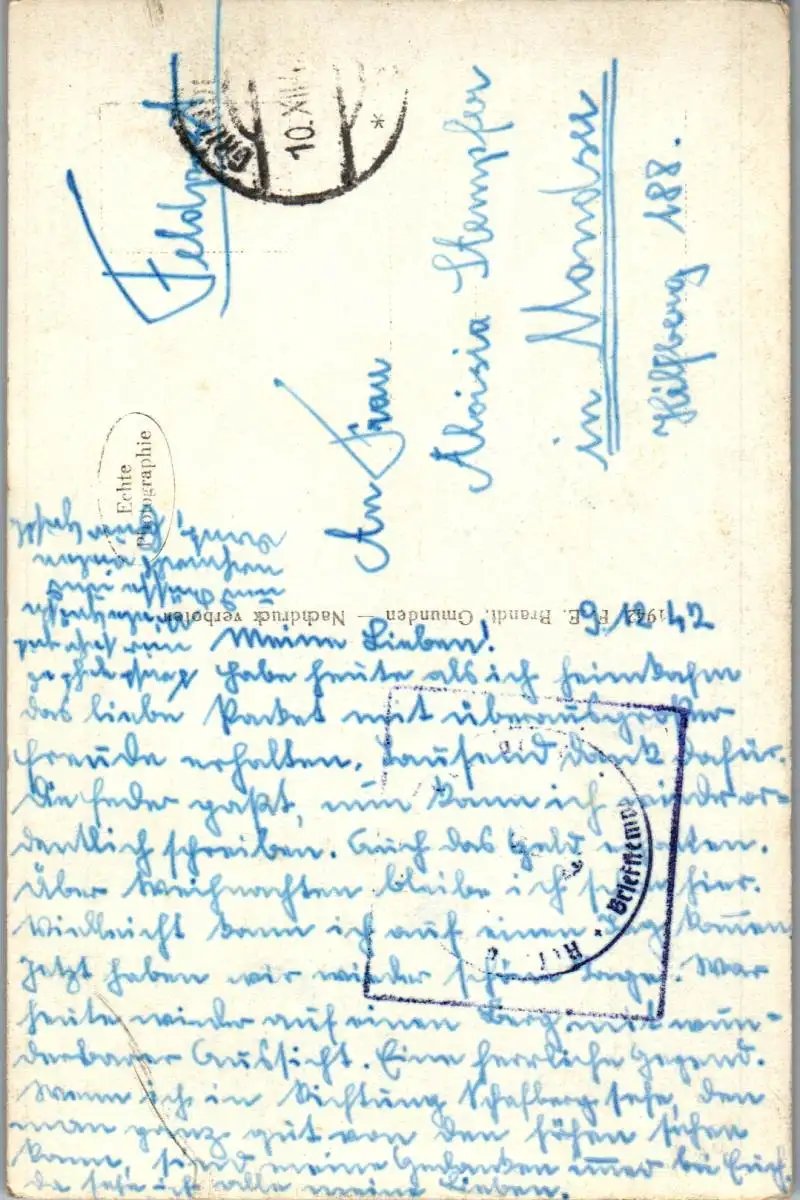 Feldpost
10.XII.
Echte
Photographie
An Frau
Aloisia Stempfer
in Mondsee
Hilfberg 188.
1942 P. E. Brandt, Gmunden — Nachdruck verboten
9.12.42
Meine Lieben!
Habe heute als ich heimkahm
das liebe Packet mit überausgroßer
Freude erhalten. Tausend Dank dafür.
Die Feder paßt, nun kann ich wieder or-
dentlich schreiben. Auch das Geld erhalten.
Über Weihnachten bleibe ich schon hier.
Vielleicht kann ich auf einen Tag kommen
Jetzt haben wir wieder schöne Tage. War
heute wieder auf einen Berg mit wun-
derbarer Aussicht. Eine herrliche Gegend.
Wenn ich in Richtung Schafberg sehe, den
man ganz gut von den Höhen sehen
kann, sind meine Gedanken immer bei Euch.
da sehe ich alle meine Lieben.
Briefstempel